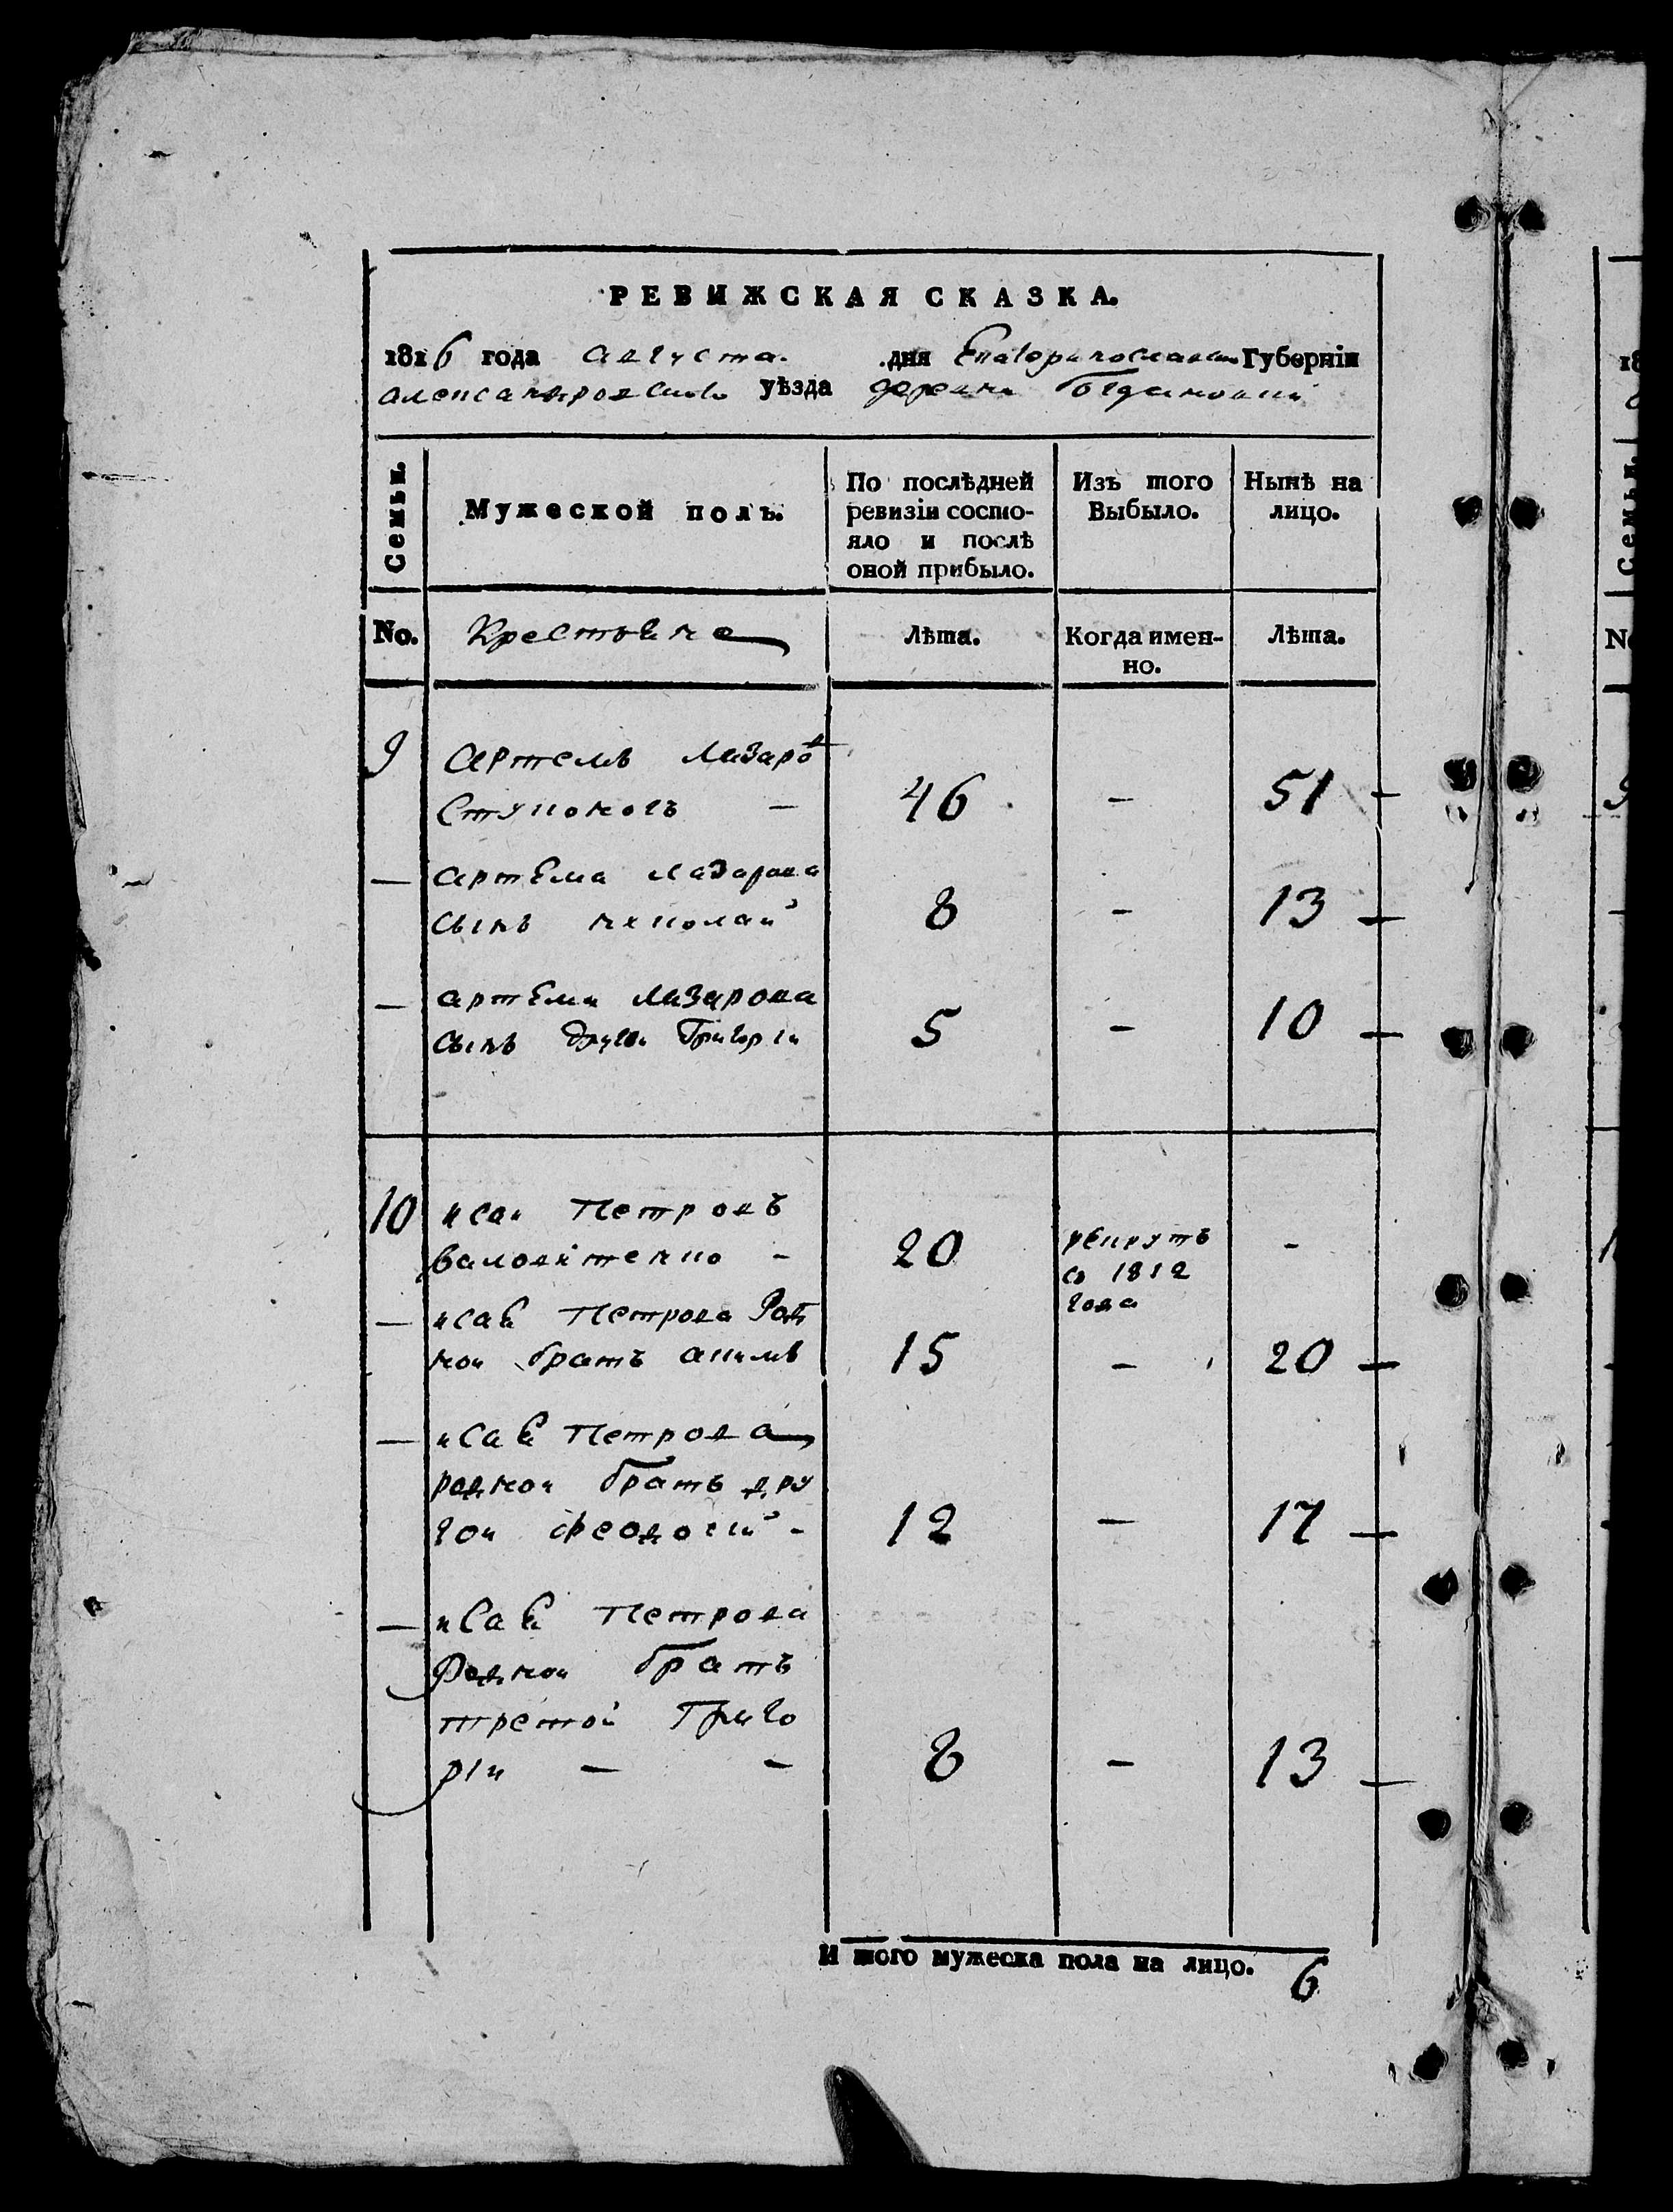 РЕВИЖСКАЯ СКАЗКА.
1816 года августа дня Екатеринославской Губерніи
александровского уѣзда деревни Богдановки
Семьи.
Мужеской полъ.
По послѣдней ревизіи состояло и послѣ оной прибыло.
Изъ того Выбыло.
Нынѣ на лицо.
No.
Крестьяне
Лѣта.
Когда именно.
Лѣта.
9 Артемъ Лазаровъ
Ступокогъ - 46 - 51
— артема лазарова
сынъ николай 8 - 13
— артема лазарова
сынъ другой Григорій 5 - 10
10 исай Петровъ
- 20 рекрутъ -
въ 1812
года
— исая Петрова Род
ной братъ акимъ 15 - 20
— исая Петрова
родной братъ дру
гой феодосій - 12 - 17
— исая Петрова
Родной братъ
третей Григо
рій - - 8 - 13
И того мужеска пола на лицо. 6
18
Семьи.
No
9
1